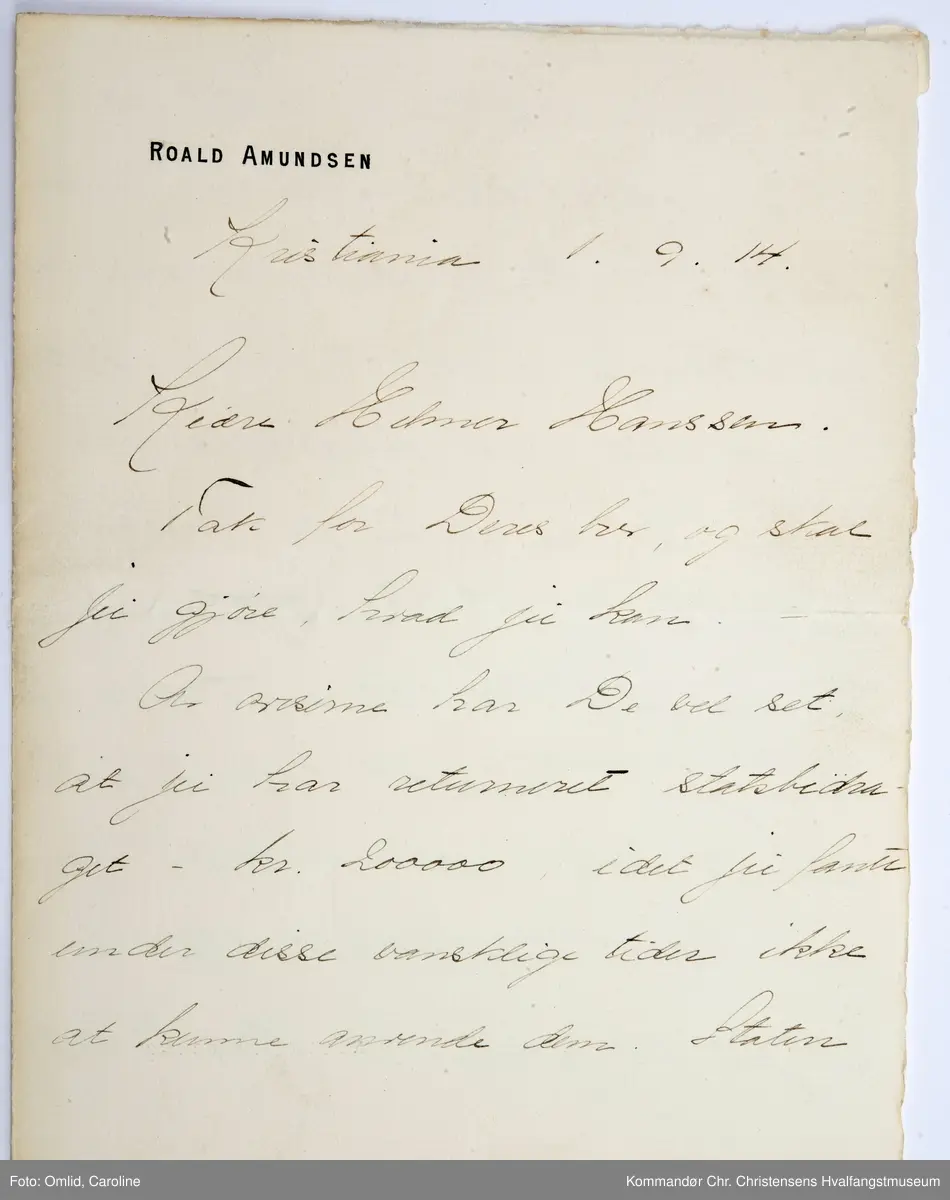 ROALD AMUNDSEN
Kristiania 1. 9. 14.
Kjære Helmer Hanssen.
Tak for Deres brev, og skal
jei gjøre, hvad jei kan. –
Av aviserne har De vel set,
at jei har returneret statsbidra-
get – kr. 200000, idet jei fant
under disse vansklige tider ikke
at kunne anvende dem. Staten
Foto: Omlid, Caroline
Kommandør Chr. Christensens Hvalfangstmuseum